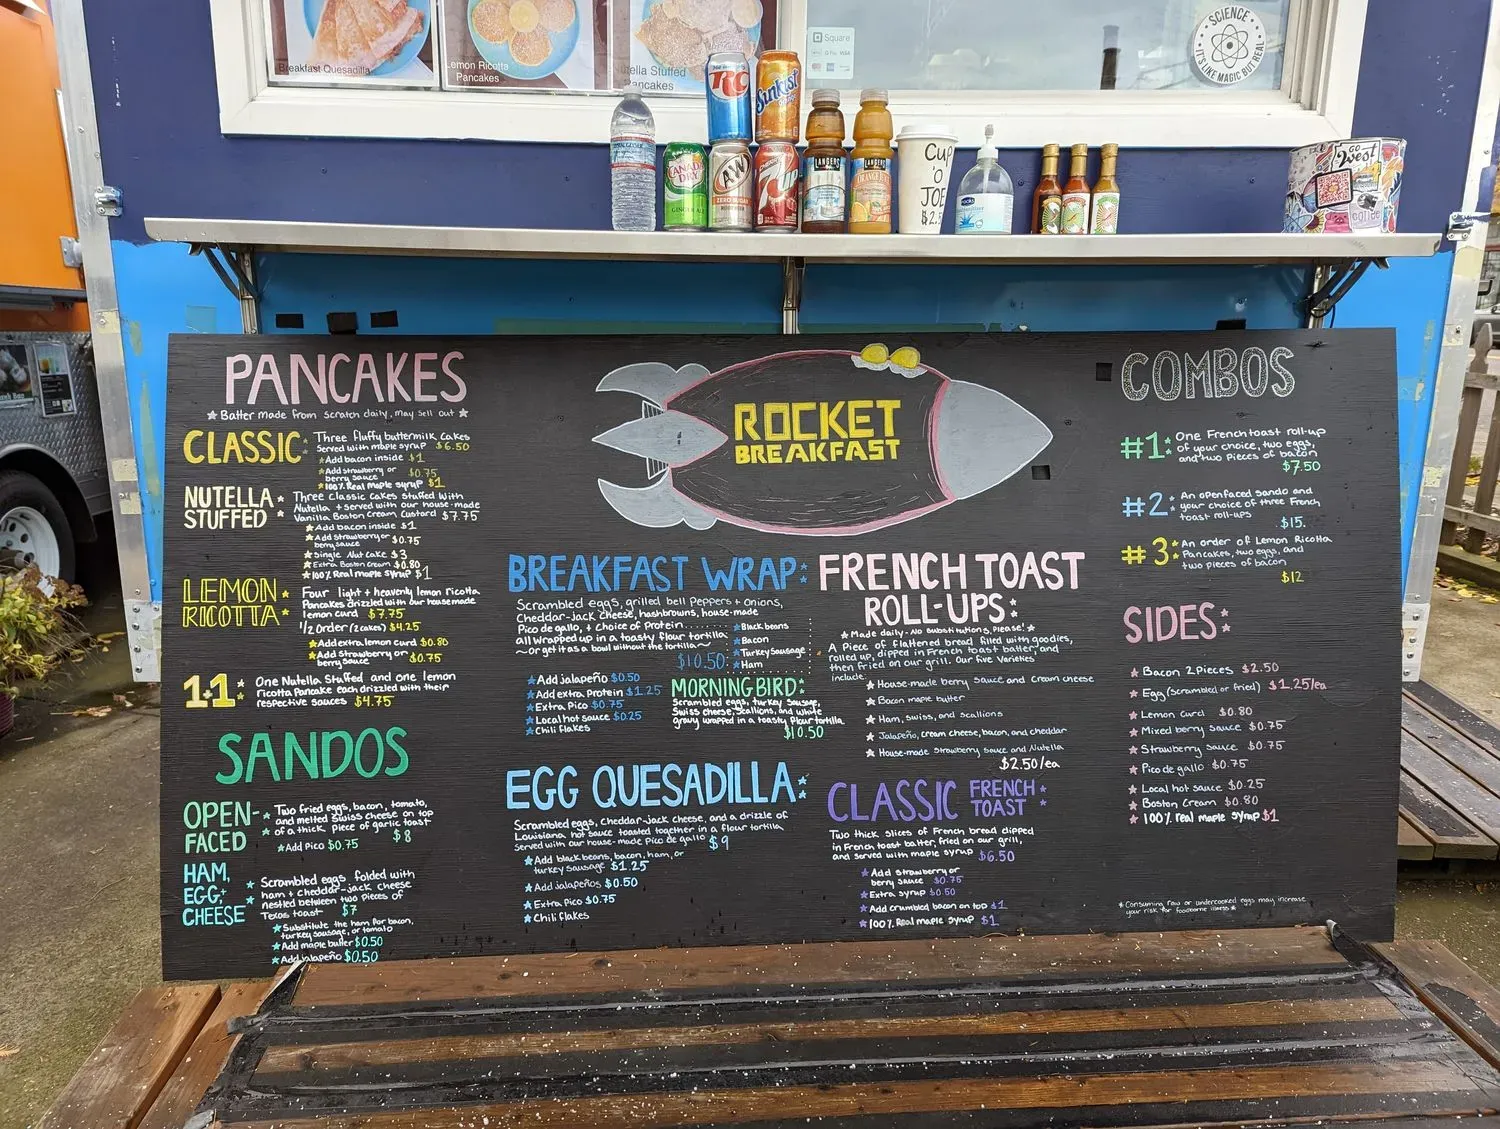 Breakfast Quesadilla
Lemon Ricotta
Pancakes
Stuffed
Pancakes
Square
G Pay VISA
SCIENCE
IT'S LIKE MAGIC BUT REAL
RC
Sunkist
CANADA DRY
GINGER ALE
A&W
ZERO SUGAR
7UP
LANGERS
LANGERS
ORANGE
Cup
'o
JOE
GO West
PANCAKES
Batter made from scratch daily, may sell out
CLASSIC: Three fluffy buttermilk cakes
Served with maple syrup $6.50
Add bacon inside $1
Add strawberry or
berry sauce $0.75
100% Real maple syrup $1
NUTELLA
STUFFED
Three classic cakes stuffed with
Nutella + served with our house-made
Vanilla Boston Cream Custard $7.75
Add bacon inside $1
Add strawberry or
berry sauce $0.75
Single Nut cake $3
Extra Boston cream $0.80
100% Real maple syrup $1
LEMON
RICOTTA
Four light + heavenly lemon ricotta
Pancakes drizzled with our housemade
lemon curd $7.75
1/2 Order (2 cakes) $4.25
Add extra lemon curd $0.80
Add Strawberry or
berry sauce $0.75
1+1: One Nutella Stuffed and one lemon
ricotta Pancake each drizzled with their
respective sauces $4.75
SANDOS
OPEN-
FACED
Two fried eggs, bacon, tomato,
and melted Swiss cheese on top
of a thick piece of garlic toast
$8
Add Pico $0.75
HAM,
EGG +
CHEESE
Scrambled eggs folded with
ham + cheddar-jack cheese
nestled between two pieces of
Texas toast $7
Substitute the ham for bacon,
turkey sausage, or tomato
Add maple butter $0.50
Add jalapeño $0.50
ROCKET
BREAKFAST
BREAKFAST WRAP:
Scrambled eggs, grilled bell Peppers + onions,
Cheddar-jack cheese, hashbrowns, house-made
Pico de gallo, + Choice of Protein
all wrapped up in a toasty flour tortilla
~Or get it as a bowl without the tortilla~
$10.50
Black beans
Bacon
Turkey Sausage
Ham
Add jalapeño $0.50
Add extra Protein $1.25
Extra Pico $0.75
Local hot sauce $0.25
Chili flakes
MORNING BIRD:
Scrambled eggs, turkey sausage,
Swiss cheese, Scallions, and white
gravy wrapped in a toasty flour tortilla
$10.50
EGG QUESADILLA:
Scrambled eggs, cheddar-jack cheese, and a drizzle of
Louisiana hot sauce toasted together in a flour tortilla
Served with our house-made Pico de gallo $9
Add black beans, bacon, ham, or
turkey sausage $1.25
Add jalapeños $0.50
Extra Pico $0.75
Chili flakes
FRENCH TOAST
ROLL-UPS:
Made daily - No substitutions, please!
A Piece of flattened bread filled with goodies,
rolled up, dipped in French toast batter, and
then fried on our grill. Our five Varieties
include:
House-made berry sauce and cream cheese
Bacon maple butter
Ham, swiss, and scallions
Jalapeño, cream cheese, bacon, and cheddar
House-made strawberry sauce and Nutella
$2.50/ea
CLASSIC FRENCH
TOAST
Two thick slices of French bread dipped
in French toast batter, fried on our grill,
and served with maple syrup $6.50
Add strawberry or
berry sauce $0.75
Extra syrup $0.50
Add crumbled bacon on top $1
100% Real maple syrup $1
COMBOS
#1: One French toast roll-up
of your choice, two eggs,
and two pieces of bacon
$7.50
#2: An openfaced sando and
your choice of three French
toast roll-ups
$15.
#3: An order of Lemon Ricotta
Pancakes, two eggs, and
two pieces of bacon
$12
SIDES:
Bacon 2 Pieces $2.50
Egg (Scrambled or fried) $1.25/ea
Lemon curd $0.80
Mixed berry sauce $0.75
Strawberry sauce $0.75
Pico de gallo $0.75
Local hot sauce $0.25
Boston Cream $0.80
100% real maple syrup $1
*Consuming raw or undercooked eggs may increase
your risk for foodborne illness*